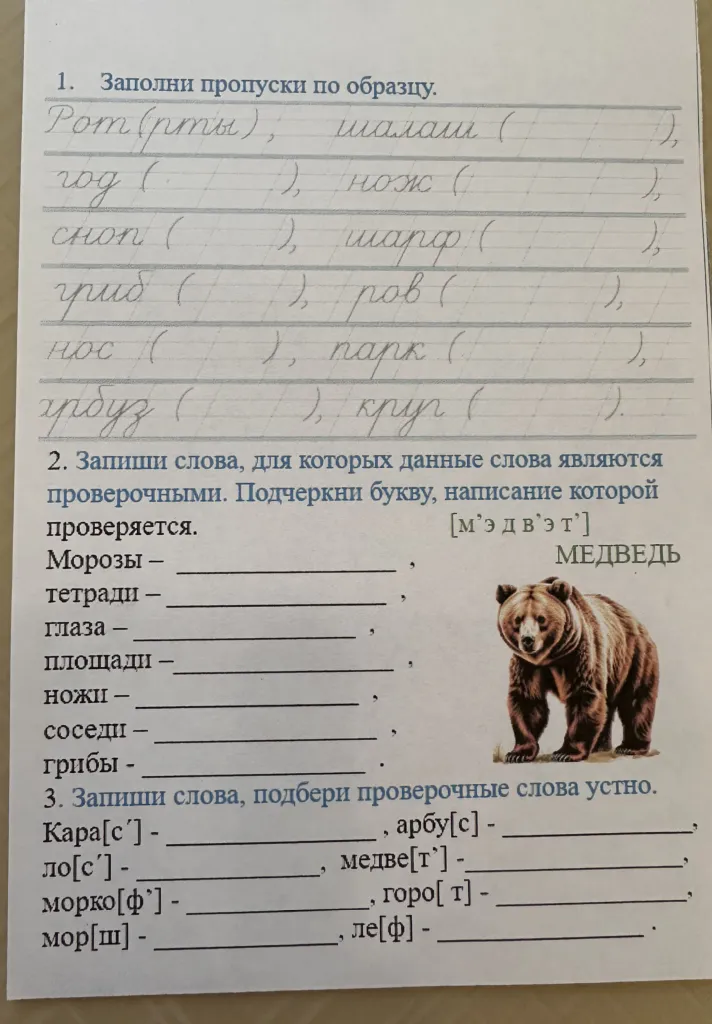 1. Заполни пропуски по образцу.
Рот (рты), шалаш ( ),
год ( ), нож ( ),
сноп ( ), шарф ( ),
гриб ( ), ров ( ),
нос ( ), парк ( ),
арбуз ( ), круг ( ).
2. Запиши слова, для которых данные слова являются
проверочными. Подчеркни букву, написание которой
проверяется. [м’э д в’э т’]
Морозы – ____________ , МЕДВЕДЬ
тетради – ____________ ,
глаза – ____________ ,
площади – ____________ ,
ножи – ____________ ,
соседи – ____________ ,
грибы - ____________ .
3. Запиши слова, подбери проверочные слова устно.
Кара[с´] - ____________ , арбу[с] - ____________ ,
ло[с´] - ____________ , медве[т’] - ____________ ,
морко[ф’] - ____________ , горо[ т] - ____________ ,
мор[ш] - ____________ , ле[ф] - ____________ .